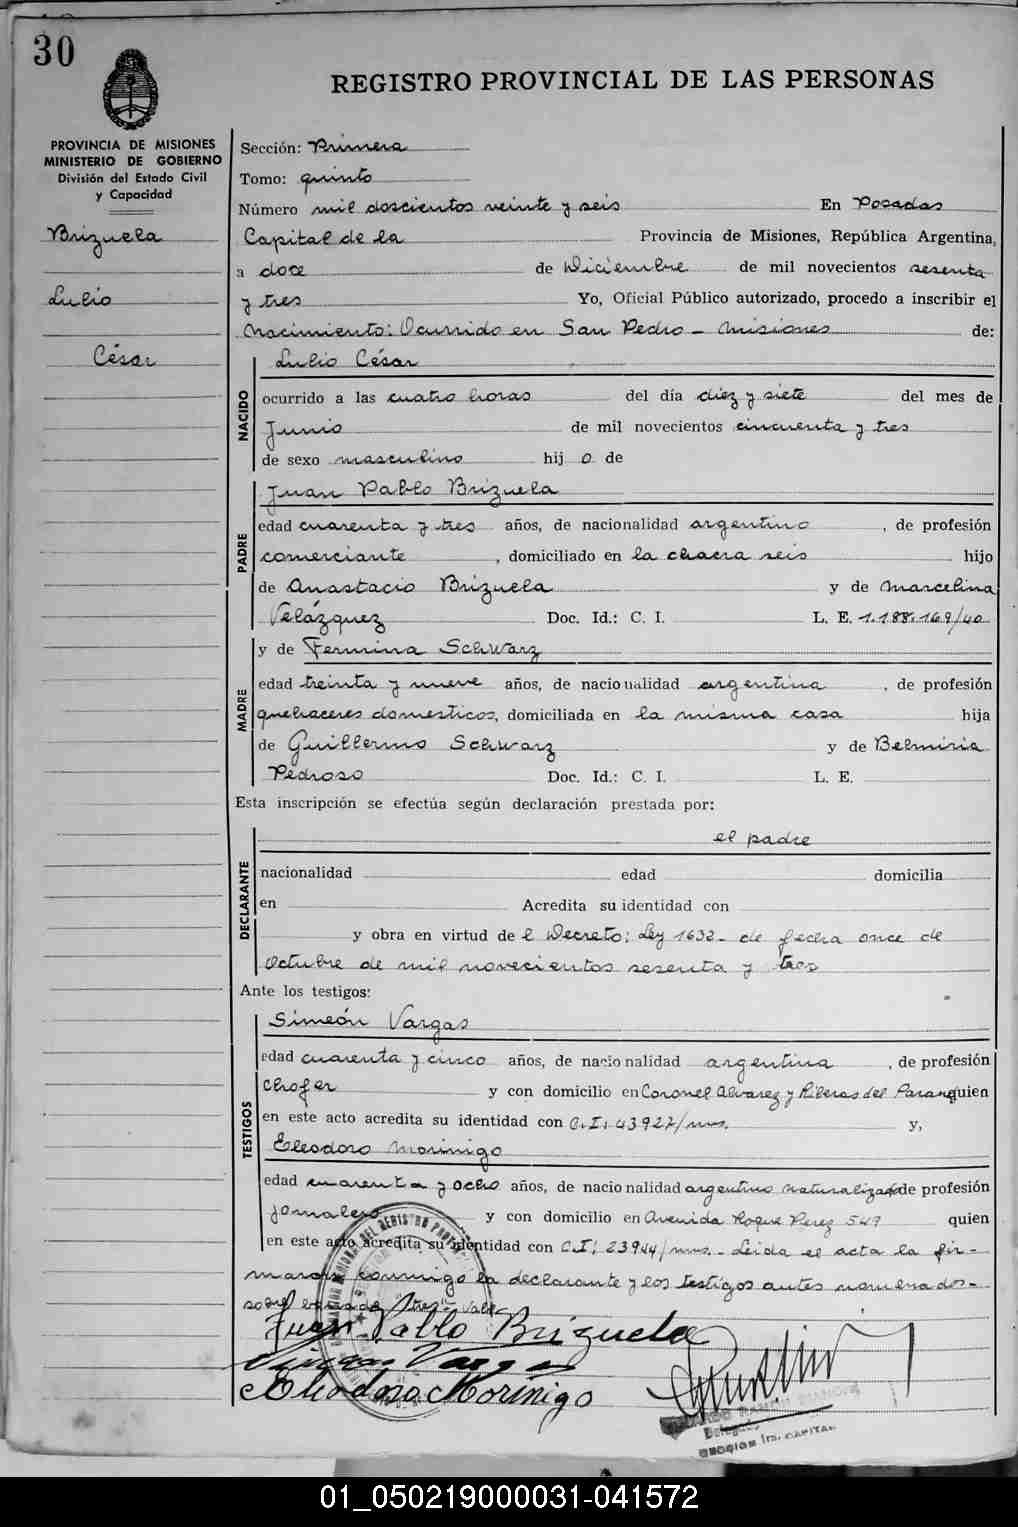 30
REGISTRO PROVINCIAL DE LAS PERSONAS
PROVINCIA DE MISIONES
MINISTERIO DE GOBIERNO
División del Estado Civil
y Capacidad
Brizuela
Lulio
César
Sección: Primera
Tomo: quinto
Número mil doscientos veinte y seis En Posadas
Capital de la Provincia de Misiones, República Argentina,
a doce de Diciembre de mil novecientos sesenta
y tres Yo, Oficial Público autorizado, procedo a inscribir el
Nacimiento: Ocurrido en San Pedro - Misiones de:
NACIDO
Lulio César
ocurrido a las cuatro horas del día diez y siete del mes de
Junio de mil novecientos cincuenta y tres
de sexo masculino hij o de
PADRE
Juan Pablo Brizuela
edad cuarenta y tres años, de nacionalidad argentino, de profesión
comerciante, domiciliado en la chacra seis hijo
de Anastacio Brizuela y de Marcelina
Velázquez Doc. Id.: C. I. L. E. 1.188.169/40
MADRE
y de Fermina Schwarz
edad treinta y nueve años, de nacionalidad argentina, de profesión
quehaceres domesticos, domiciliada en la misma casa hija
de Guillermo Schwarz y de Belmiria
Pedroso Doc. Id.: C. I. L. E.
Esta inscripción se efectúa según declaración prestada por:
DECLARANTE
el padre
nacionalidad edad domicilia
en Acredita su identidad con
y obra en virtud de l Decreto: Ley 1632 - de fecha once de
Octubre de mil novecientos sesenta y tres
Ante los testigos:
TESTIGOS
Simeón Vargas
edad cuarenta y cinco años, de nacionalidad argentina, de profesión
chofer y con domicilio en Coronel Alvarez y Riberas del Parana quien
en este acto acredita su identidad con C.I. 43927/mns. y,
Eleodoro Morinigo
edad cuarenta y ocho años, de nacionalidad argentino naturalizado de profesión
jornalero y con domicilio en Avenida Roque Perez 549 quien
en este acto acredita su identidad con C.I: 23944/mns. - Leida el acta la fir-
maron conmigo la declarante y los testigos antes nomenados -
sobre "tres" - vale
Juan Pablo Brizuela
Vargas
Eleodoro Morinigo
CAPITAL
01_050219000031-041572